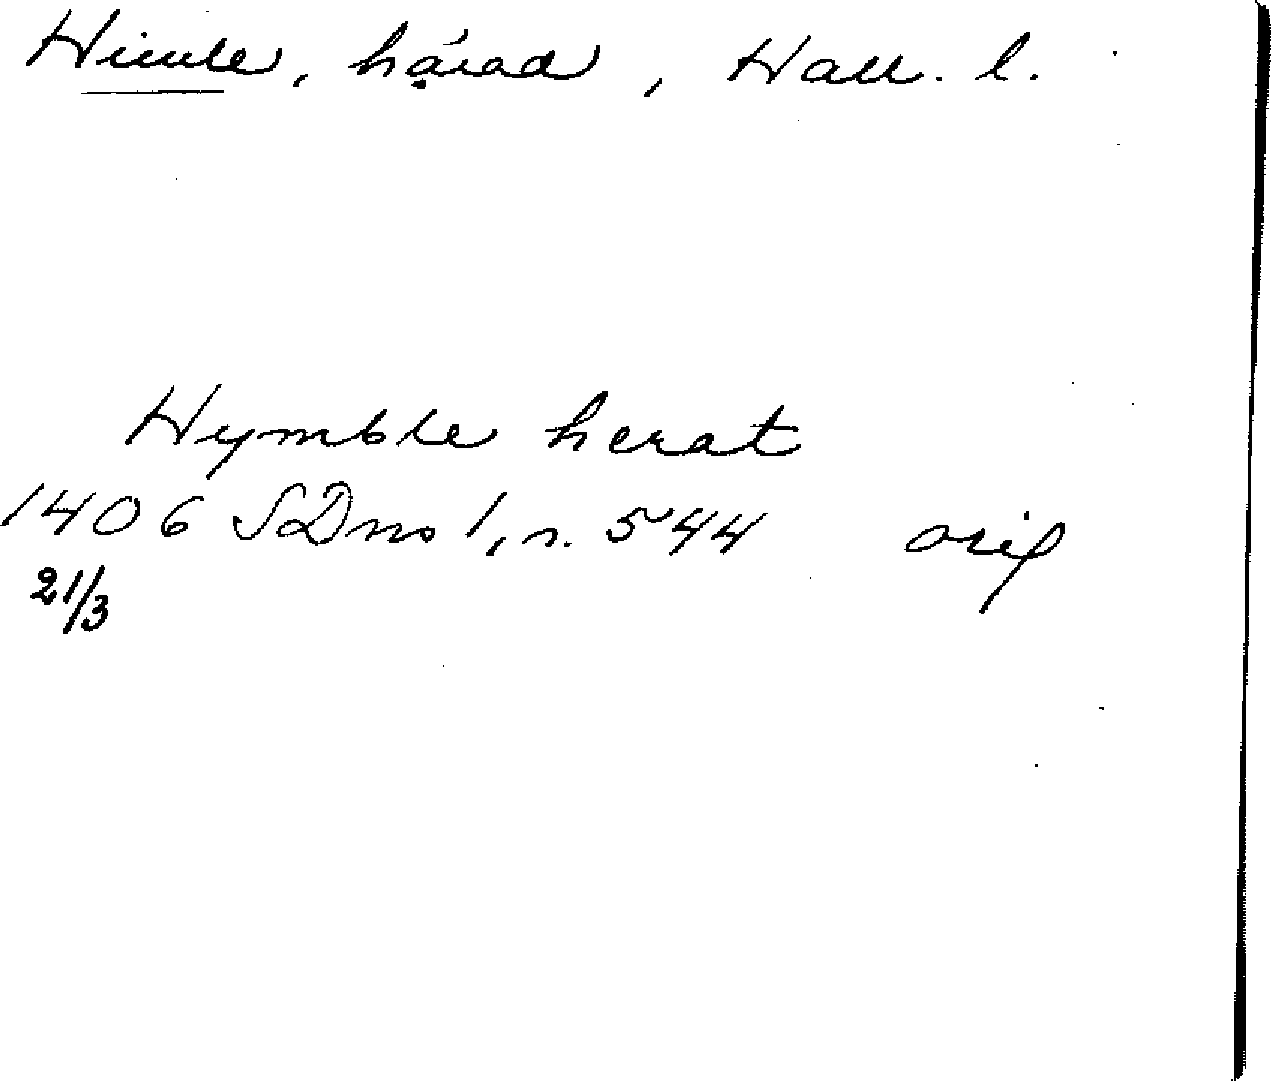 Himle, härad, Hall. l.
Hymble herat
1406 SDns 1, s. 544 orig
21/3